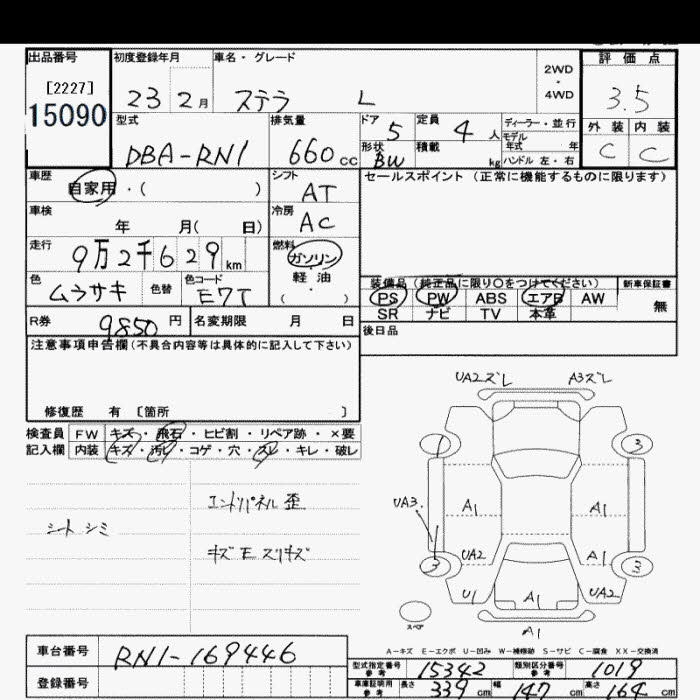 出品番号 初度登録年月 車名・グレード 評価点
[2227] 23 2月 ステラ L 2WD・4WD 3.5
15090
型式 排気量 ドア 5 定員 4人 ディーラー・並行 外装 内装
DBA-RN1 660cc 形状 BW 積載 kg モデル年式 年 C C
ハンドル 左・右
車歴 自家用・( ) シフト AT セールスポイント (正常に機能するものに限ります)
車検 年 月( 日) 冷房 AC
走行 9万2千629km 燃料 ガソリン
軽油
( )
色 ムラサキ 色替 色コード E7T
装備品(純正品に限り○をつけてください) 新車保証書
PS PW ABS エアB AW 無
SR ナビ TV 本革
R券 9850円 名変期限 月 日 後日品
注意事項申告欄(不具合内容等は具体的に記入して下さい)
修復歴 有 〔箇所 〕
検査員 FW キズ・飛石・ヒビ割・リペア跡・×要
記入欄 内装 キズ・汚レ・コゲ・穴・スレ・キレ・破レ
エンドパネル歪
シートシミ
キズEスリキズ
UA2ズレ A3ズレ
3 3
UA3. A1 A1
UA2 A1
3 3
U1 A1 UA2
スペア
A1
A-キズ E-エクボ U-凹み W-補修跡 S-サビ C-腐食 XX-交換済
車台番号 RN1-169446
型式指定番号 参考 15342 類別区分番号 参考 1019
登録番号
車庫証明用 参考 長さ 339cm 幅 147cm 高さ 164cm